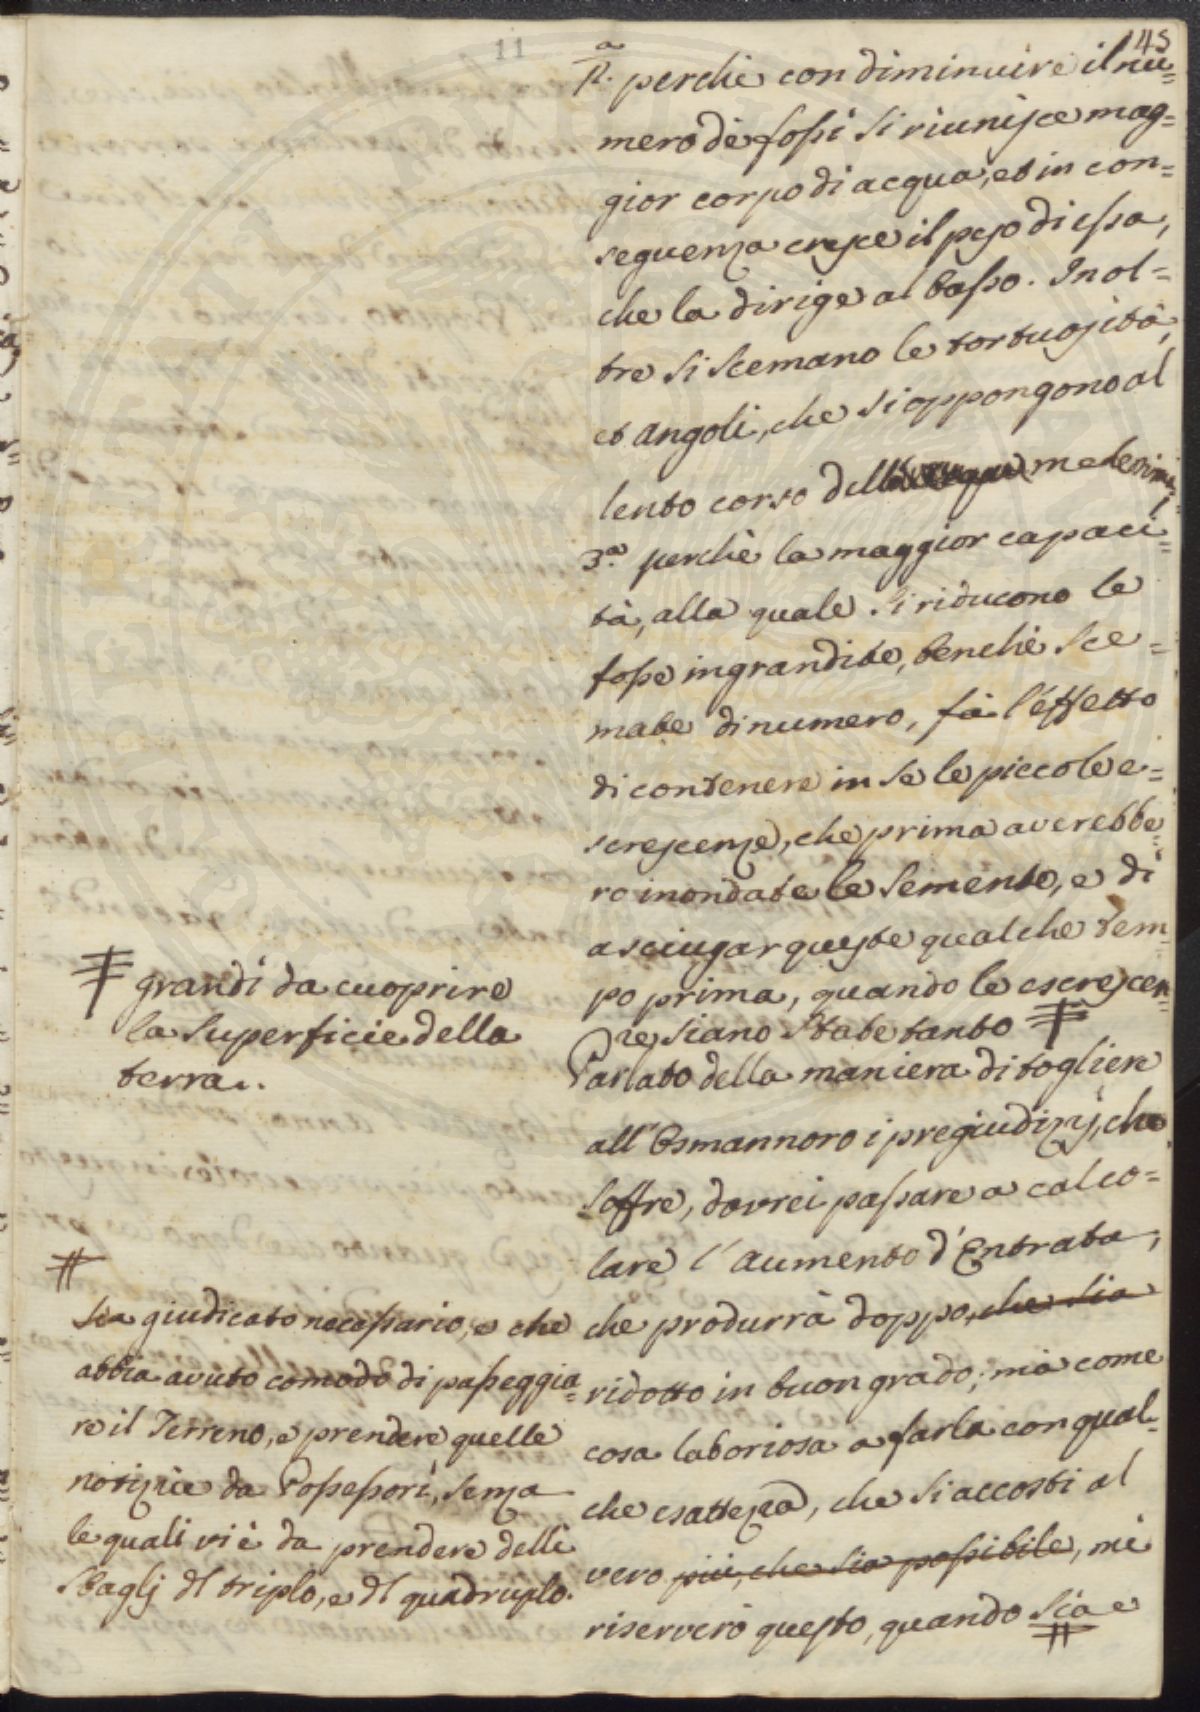 11
145
2.a perchè con diminuire il nu=
mero de fossi si riunisce mag=
gior corpo di acqua, et in con=
seguenza cresce il peso di essa,
che la dirige al basso. Inol=
tre si scemano le tortuosità,
et angoli, che si oppongono al
lento corso dell' medesima;
3.a perchè la maggior capaci=
tà, alla quale si riducono le
fosse ingrandite, benchè sce=
mate di numero, fà l'effetto
di contenere in se le piccole e=
screscenze, che prima averebbe=
ro inondate le semente, e di
asciugar queste qualche tem=
po prima, quando le escrescen=
ze siano state tanto
Parlato della maniera di togliere
all'Osmannoro i pregiudizij, che
soffre, dovrei passare a calco=
lare l'aumento d'Entrata,
che produrrà doppo, che sia
ridotto in buon grado; mà come
cosa laboriosa a farla con qual=
che esattezza, che si accosti al
vero più, che sia possibile, mi
riserverò questo, quando sia e
grandi da cuoprire
la superficie della
terra..
sia giudicato necessario, e che
abbia avuto comodo di passeggia=
re il Terreno, e prendere quelle
notizie da Possessori, senza
le quali vi è da prendere delli
sbaglj del triplo, e del quadruplo.